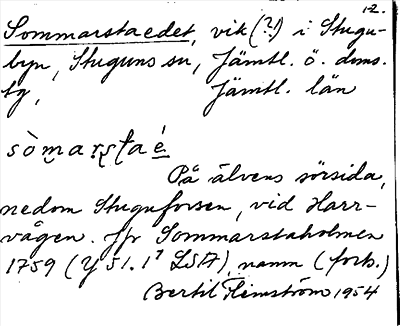 12.
Sommarstaedet, vik (?) i Stugu-
byn, Stuguns sn, Jämtl. ö. doms.
tg, Jämtl. län
sòmarstaé
På älvens sörsida,
nedom Stuguforsen, vid Harr-
vågen. Jfr Sommarstaholmen
1759 (Y 51. 1⁷ LSA), namn (forb.)
Bertil Flemström 1954